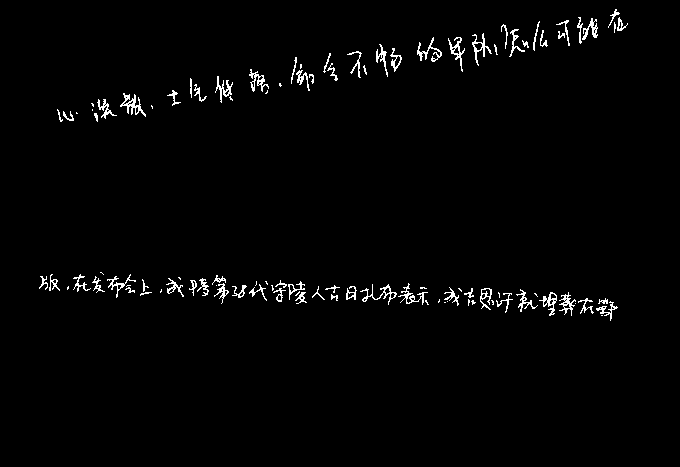 心涣散,士气低落,命令不畅的军队,怎么可能在
版,在发布会上,成陵第38代守陵人古日扎布表示,成吉思汗就埋葬在鄂